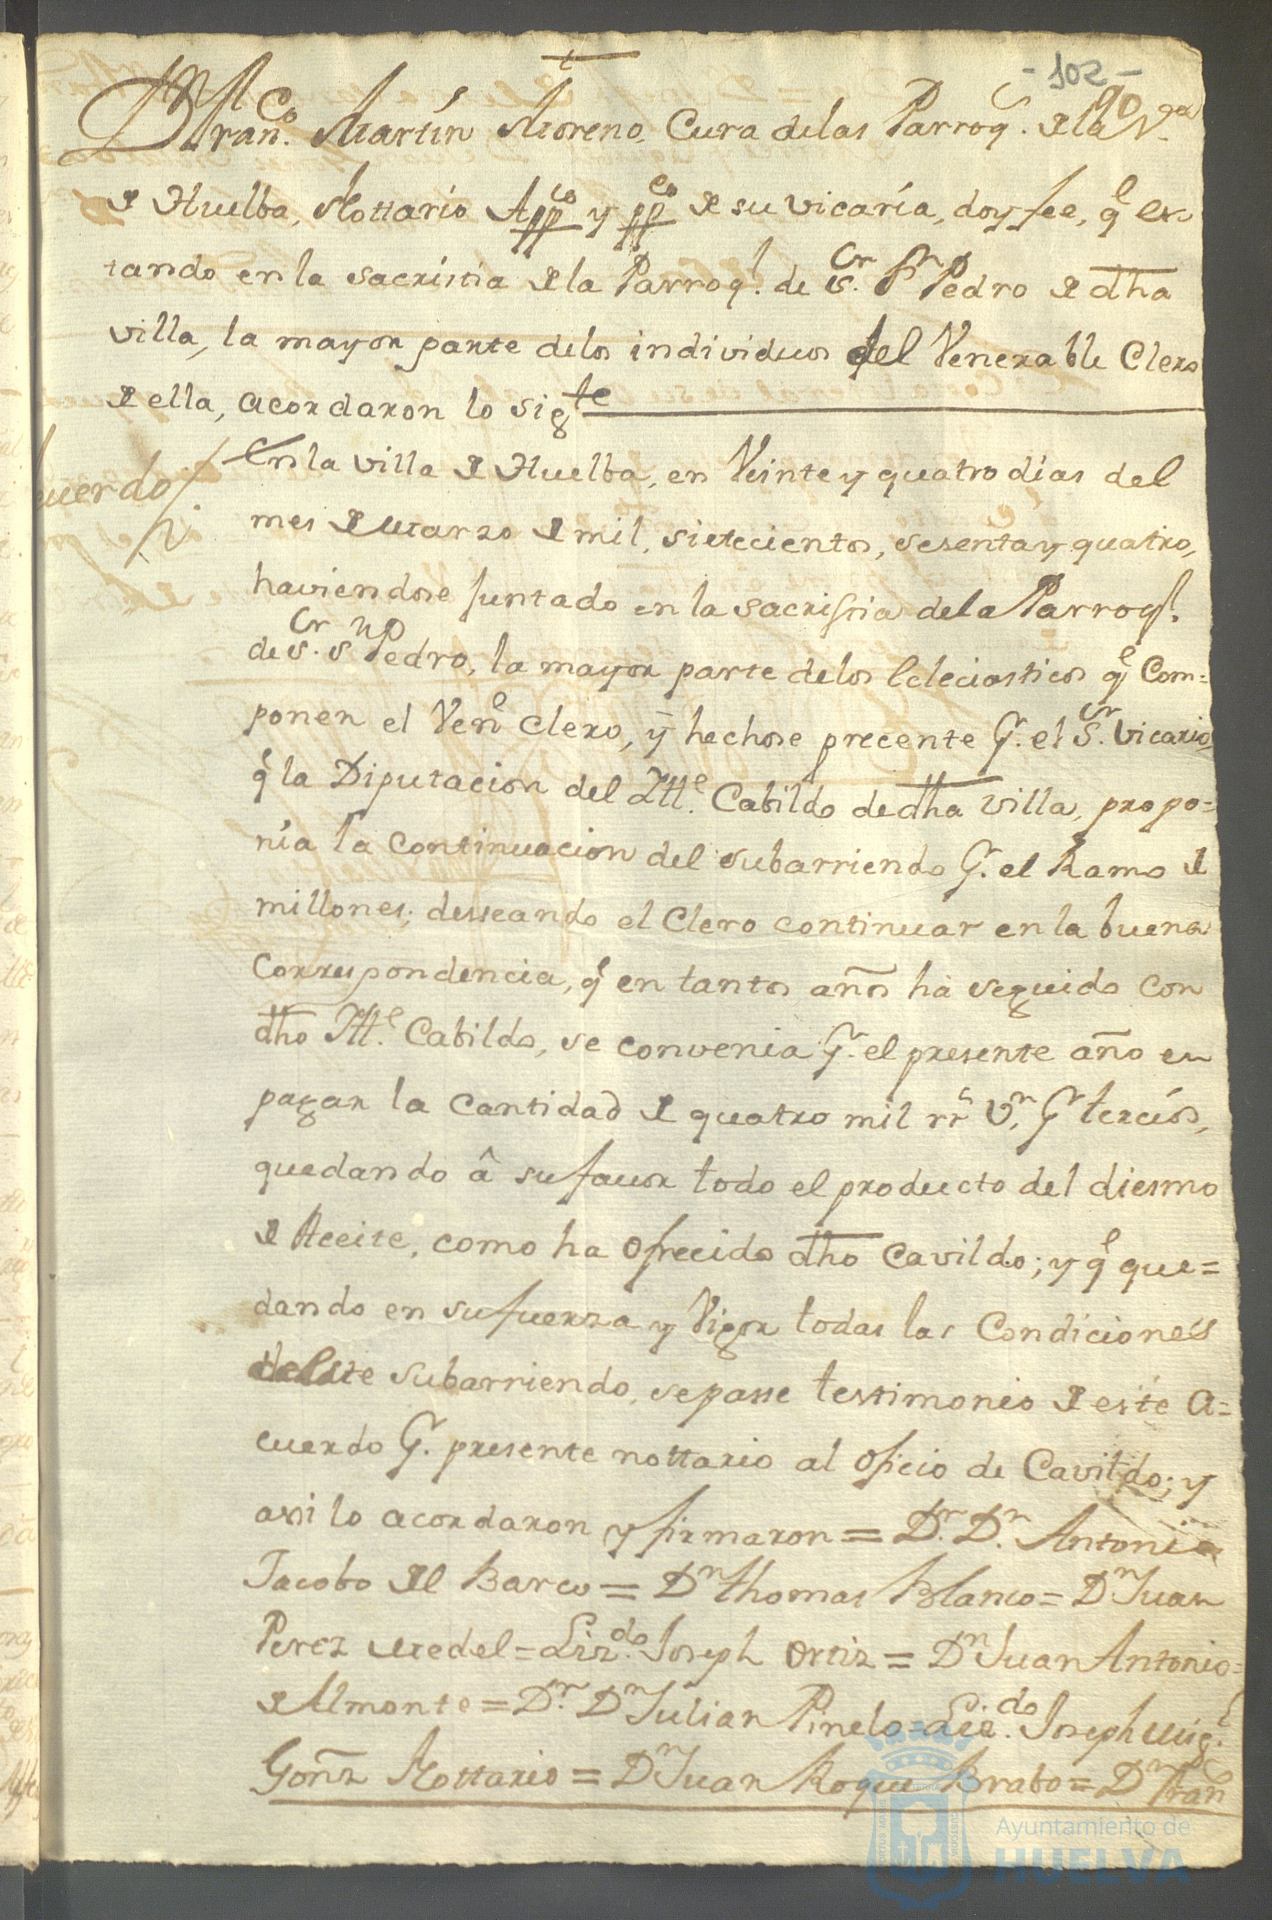 - 102 -
90
Dn Franco. Martin Moreno, Cura delas Parroqs. de la Va.
de Huelba, Nottario Appco y ppco de su vicaría, doy fee, qe es
tando en la sacristia de la Parroql. de Sr. Sn Pedro de dha
villa, la mayor parte delos individuos del Venerable Clero
de ella, acordaron lo sigte
cuerdo
En la villa de Huelba, en Veinte y quatro dias del
mes de Marzo de mil, sieteciento, sesenta y quatro,
haviendose juntado en la sacristia dela Parroql.
de Sr. Sn Pedro, la mayor parte delos Eclesiasticos qe Com=
ponen el Vene. Clero, y hechose precente Pr. el Sr. Vicario,
qe la Diputacion del Ille. Cabildo de dha villa, propo=
nía la continuacion del subarriendo Pr. el Ramo de
millones; desseando el Clero continuar en la buena
Correspondencia, qe en tantos años ha seguido con
dho Ille. Cabildo, se convenia Pr. el presente año en
pagar la Cantidad de quatro mil rrs Vn, Pr tercios,
quedando â su favor todo el producto del diesmo
de Aceite, como ha ofrecido dho Cavildo; y qe que=
dando en su fuerza y Vigor todas las Condiciones
deleste subarriendo, se passe testimonio de este A=
cuerdo Pr. presente nottario al oficio de Cavildo; y
assi lo acordaron y firmaron = Dr. Dn. Antonio
Jacobo del Barco = Dn Thomas Blanco = Dn Juan
Perez Medel = Lizdo. Joseph Ortiz = Dn Juan Antonio
de Almonte = Dr. Dn Julian Pinelo = Lizdo. Joseph Migl.
Goñz Nottario = Dn Juan Roque Brabo = Dn Franco
Ayuntamiento de
HUELVA